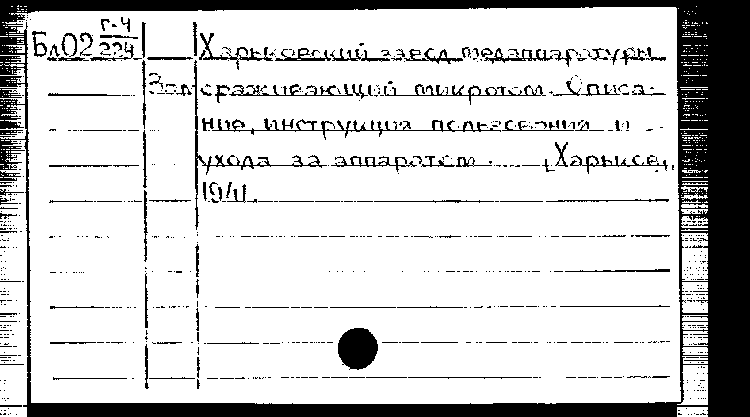 Бл02 г-4/224 Харьковский завод медаппаратуры
Замораживающий микротом. Описа-
ние, инструкция пользования и
ухода за аппаратом. [Харьков],